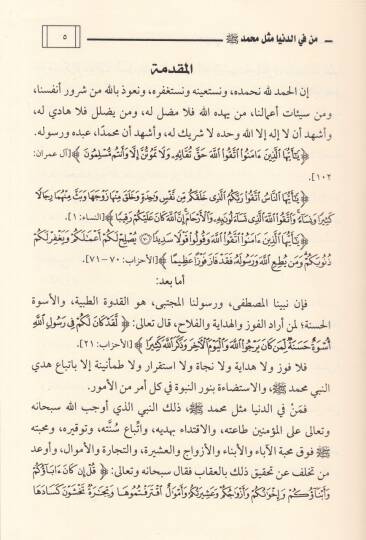 من في الدنيا مثل محمد ﷺ
٥
المقدمة
إن الحمد لله نحمده، ونستعينه ونستغفره، ونعوذ بالله من شرور أنفسنا،
ومن سيئات أعمالنا، من يهده الله فلا مضل له، ومن يضلل فلا هادي له،
وأشهد أن لا إله إلا الله وحده لا شريك له، وأشهد أن محمدًا، عبده ورسوله.
﴿يَا أَيُّهَا الَّذِينَ ءَامَنُوا اتَّقُوا اللَّهَ حَقَّ تُقَاتِهِ وَلَا تَمُوتُنَّ إِلَّا وَأَنتُم مُّسْلِمُونَ﴾ [آل عمران:
١٠٢].
﴿يَا أَيُّهَا النَّاسُ اتَّقُوا رَبَّكُمُ الَّذِي خَلَقَكُم مِّن نَّفْسٍ وَاحِدَةٍ وَخَلَقَ مِنْهَا زَوْجَهَا وَبَثَّ مِنْهُمَا رِجَالًا
كَثِيرًا وَنِسَاءً وَاتَّقُوا اللَّهَ الَّذِي تَسَاءَلُونَ بِهِ وَالْأَرْحَامَ إِنَّ اللَّهَ كَانَ عَلَيْكُمْ رَقِيبًا﴾ [النساء: ١].
﴿يَا أَيُّهَا الَّذِينَ ءَامَنُوا اتَّقُوا اللَّهَ وَقُولُوا قَوْلًا سَدِيدًا ﴿٧٠﴾ يُصْلِحْ لَكُمْ أَعْمَالَكُمْ وَيَغْفِرْ لَكُمْ
ذُنُوبَكُمْ وَمَن يُطِعِ اللَّهَ وَرَسُولَهُ فَقَدْ فَازَ فَوْزًا عَظِيمًا﴾ [الأحزاب: ٧٠-٧١].
أما بعد:
فإن نبينا المصطفى، ورسولنا المجتبى، هو القدوة الطيبة، والأسوة
الحسنة؛ لمن أراد الفوز والهداية والفلاح، قال تعالى: ﴿لَّقَدْ كَانَ لَكُمْ فِي رَسُولِ اللَّهِ
أُسْوَةٌ حَسَنَةٌ لِّمَن كَانَ يَرْجُو اللَّهَ وَالْيَوْمَ الْآخِرَ وَذَكَرَ اللَّهَ كَثِيرًا﴾ [الأحزاب: ٢١].
فلا فوز ولا هداية ولا نجاة ولا استقرار ولا طمأنينة إلا باتباع هدي
النبي محمد ﷺ، والاستضاءة بنور النبوة في كل أمر من الأمور.
فمَنْ في الدنيا مثل محمد ﷺ، ذلك النبي الذي أوجب الله سبحانه
وتعالى على المؤمنين طاعته، والاقتداء بهديه، واتِّباع سُنَّته، وتوقيره، ومحبته
ﷺ فوق محبة الآباء والأبناء والأزواج والعشيرة، والتجارة والأموال، وأوعد
من تخلف عن تحقيق ذلك بالعقاب فقال سبحانه وتعالى: ﴿قُلْ إِن كَانَ ءَابَاؤُكُمْ
وَأَبْنَاؤُكُمْ وَإِخْوَانُكُمْ وَأَزْوَاجُكُمْ وَعَشِيرَتُكُمْ وَأَمْوَالٌ اقْتَرَفْتُمُوهَا وَتِجَارَةٌ تَخْشَوْنَ كَسَادَهَا